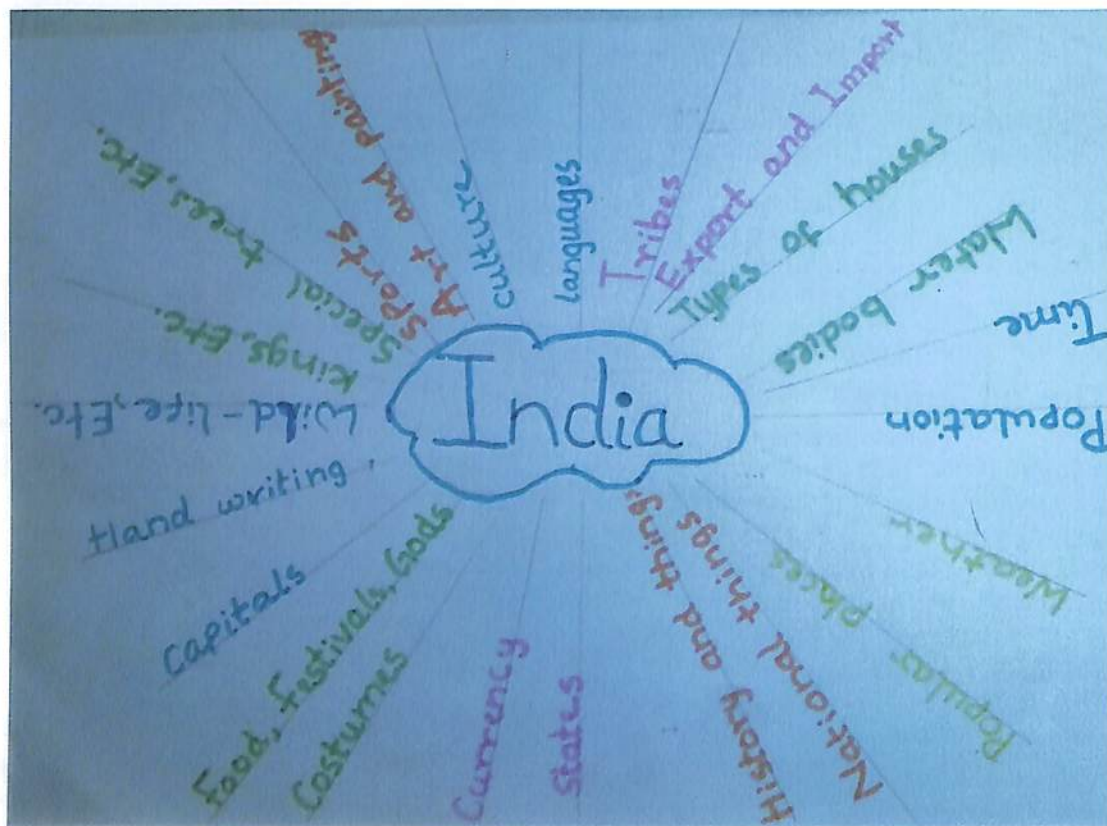 India
languages
Tribes
Export and Import
Types of houses
Water bodies
Time
Population
Weather
Popular places
National things
History and things
States
Currency
Costumes
Food, Festivals, Gods
Capitals
Hand writing
Wild-life, Etc.
Kings, Etc.
Special trees, Etc.
SPorts
Art and painting
culture